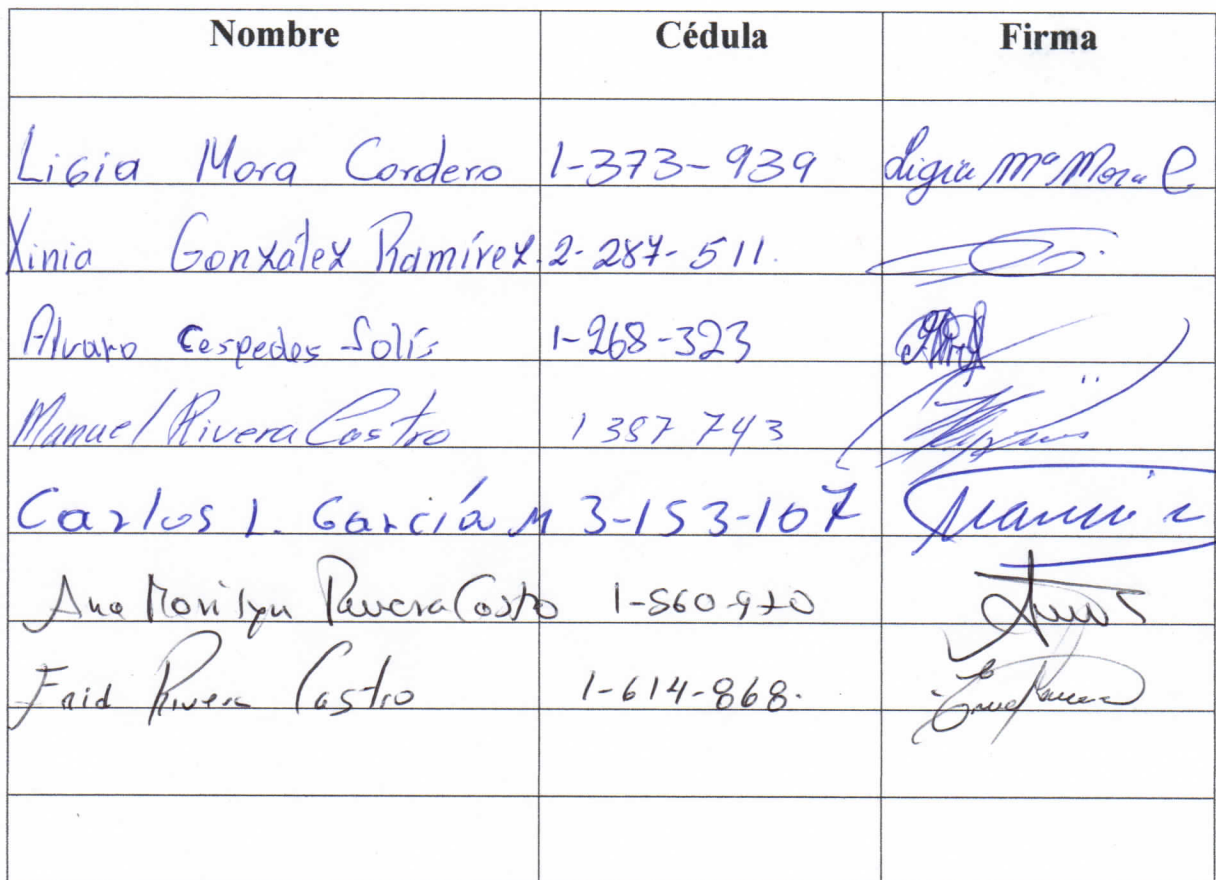 Nombre Cédula Firma
Ligia Mora Cordero 1-373-939 Ligia Mª Mora C
Xinia González Ramírez. 2-287-511.
Alvaro Cespedes Solís 1-268-323
Manuel Rivera Castro 1 387 743
Carlos L. García M 3-153-107
Ana Marilyn Rivera Castro 1-560-970
Rivera Castro 1-614-868.